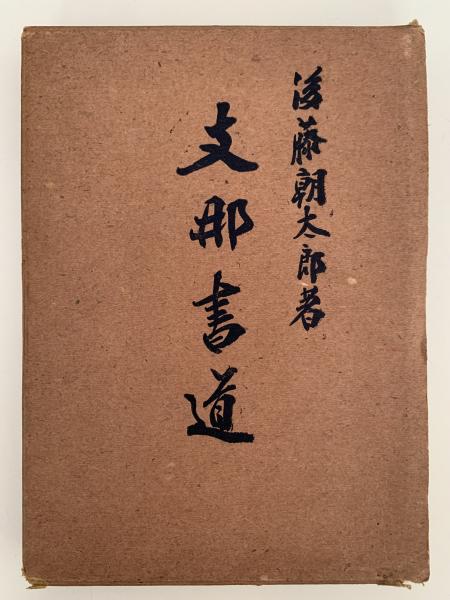 後藤朝太郎著
支那書道